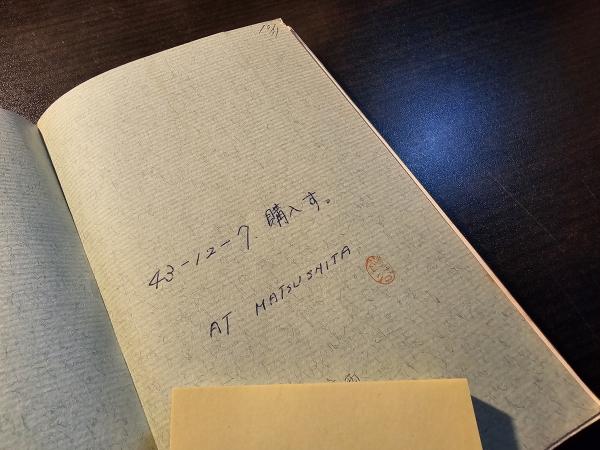 43-12-7. 購入す。
AT MATSUSHITA